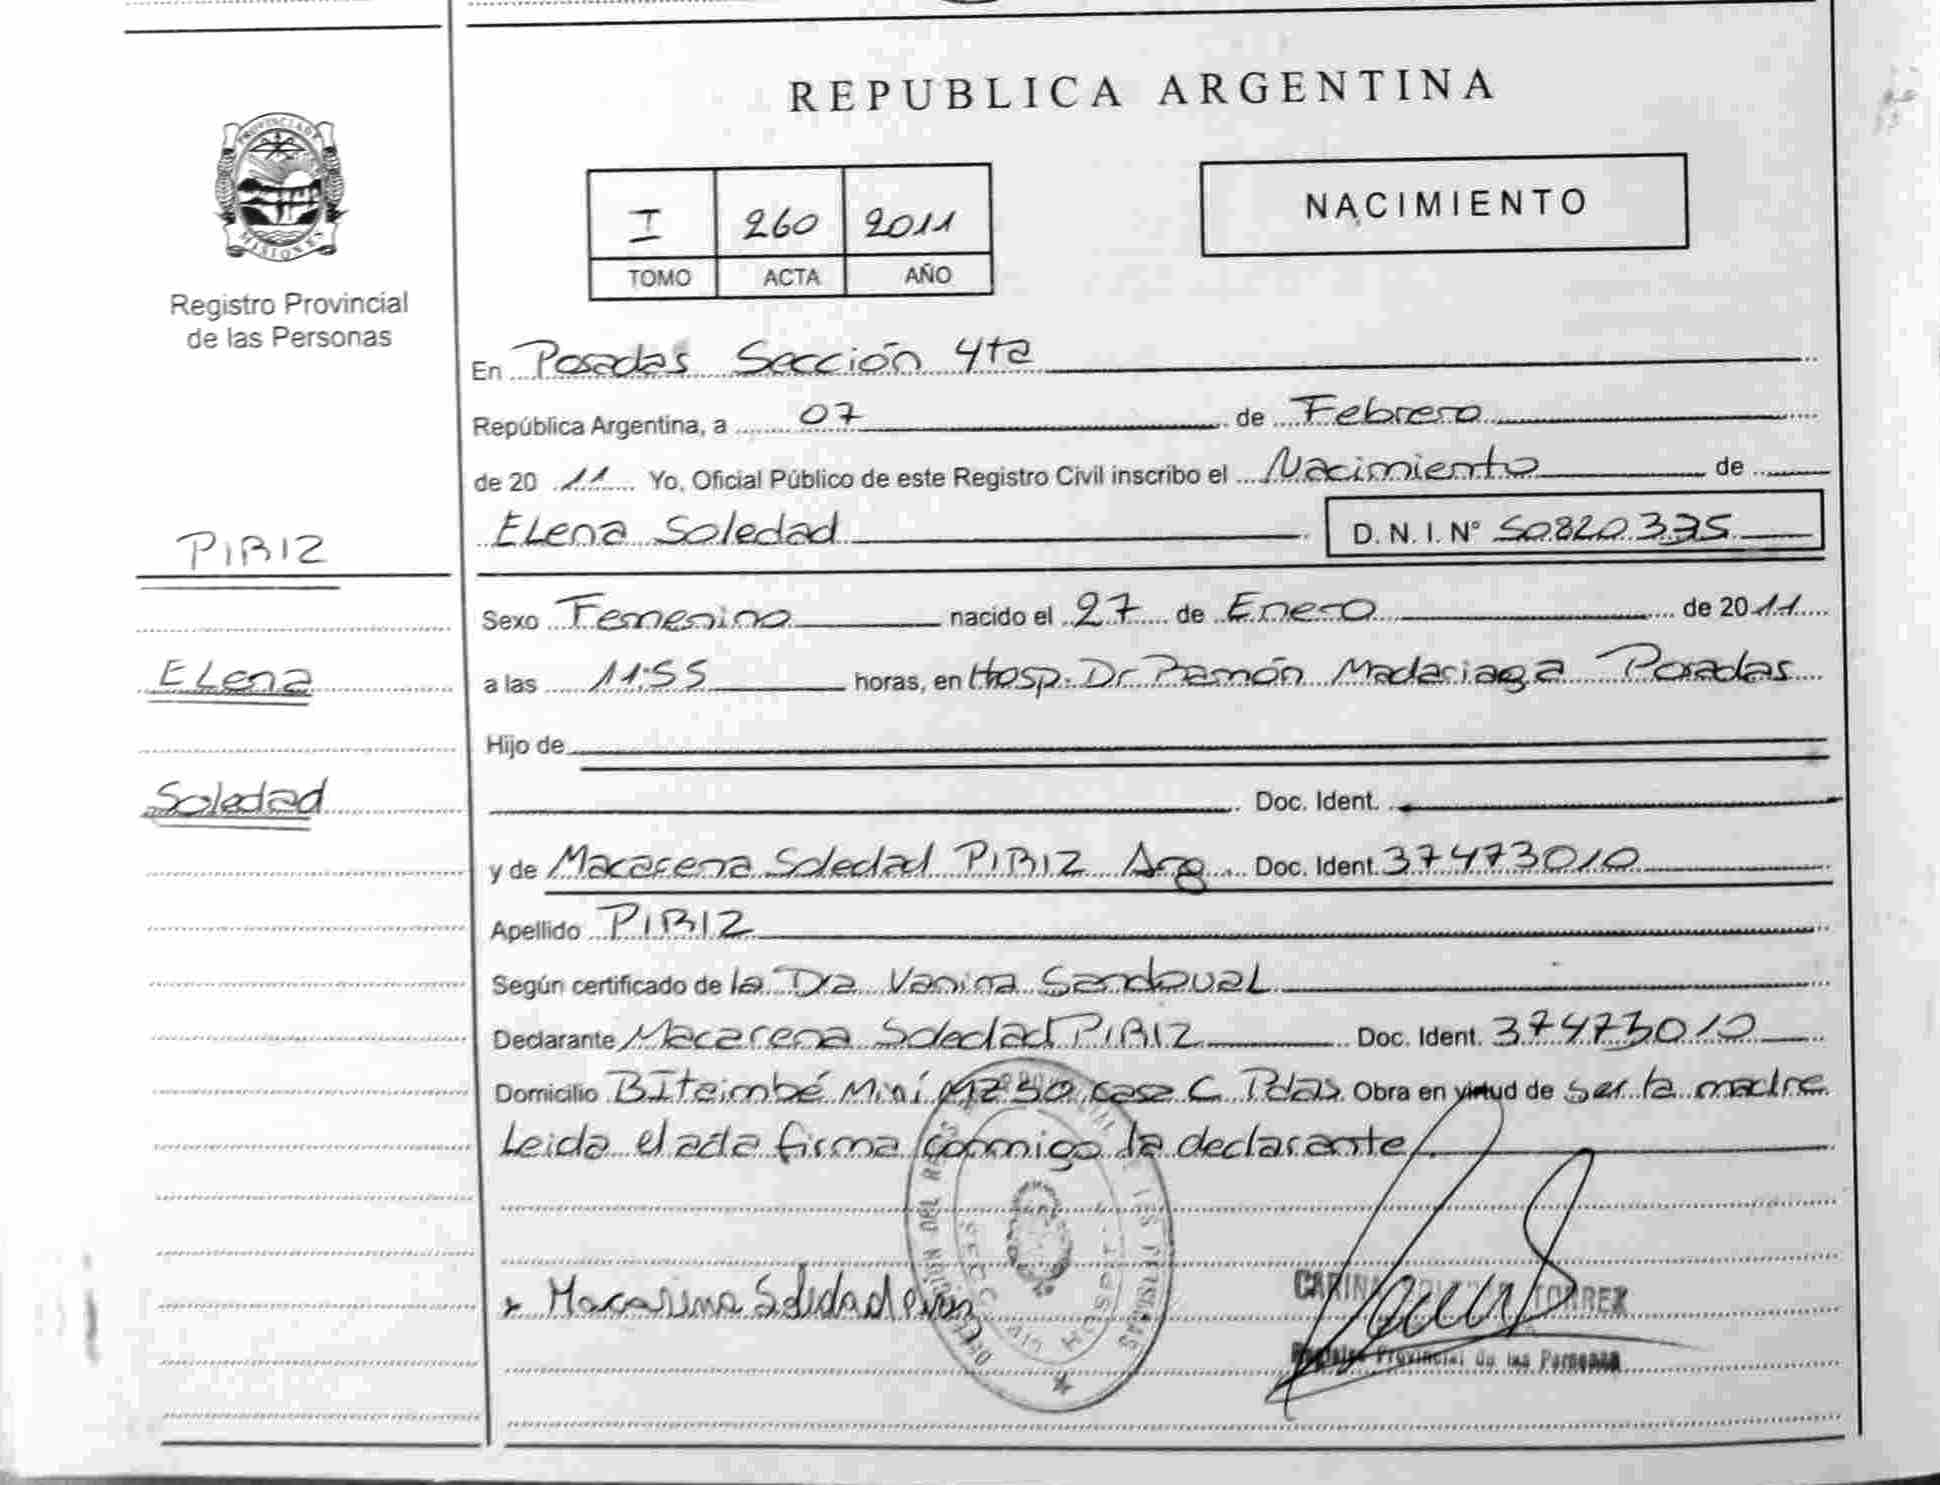 REPUBLICA ARGENTINA
PROVINCIA DE
MISIONES
Registro Provincial
de las Personas
I 260 2011
TOMO ACTA AÑO
NACIMIENTO
En Posadas Sección 4ta
República Argentina, a 07 de Febrero
de 20 11 Yo, Oficial Público de este Registro Civil inscribo el Nacimiento de
ELena Soledad D. N. I. Nº 50820335
PIRIZ
Sexo Femenino nacido el 27 de Enero de 20 11
ELena
a las 11:55 horas, en Hosp. Dr Ramón Madariaga Posadas
Hijo de
Soledad
Doc. Ident.
y de Macarena Soledad PIRIZ Arg. Doc. Ident. 37473010
Apellido PIRIZ
Según certificado de la Dra Vanina SandovaL
Declarante Macarena Soledad PIRIZ Doc. Ident. 37473010
Domicilio Miní MZ 50 casa C Pdas Obra en virtud de ser la madre
Leida el acta firma conmigo la declarante.
x Macarena Soledad Piriz
CARINA TORREZ
Registro Provincial de las Personas